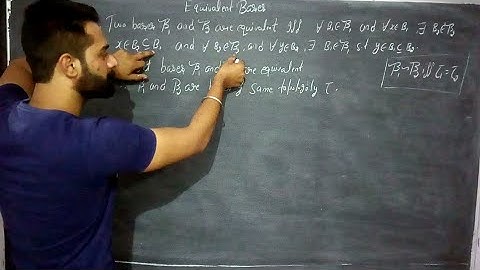 Equivalent Bases
Two bases ℬ₁ and ℬ₂ are equivalent iff ∀ B₁∈ℬ₁ and ∀x∈B₁ ∃ B₂∈ℬ₂
x∈B₂⊆B₁ and ∀ B₂∈ℬ₂ and ∀y∈B₂, ∃ B₁∈ℬ₁ st y∈B₁⊆B₂.
bases ℬ₁ and are equivalent
and ℬ₂ are same topology τ.
ℬ₁~ℬ₂ iff τ₁=τ₂